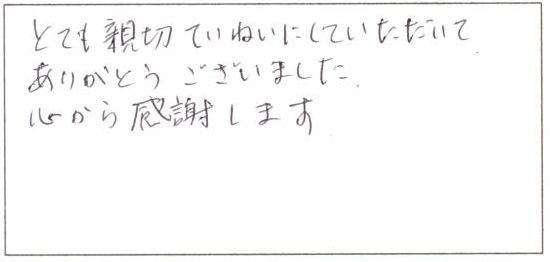 とても親切ていねいにしていただいて
ありがとうございました.
心から感謝します